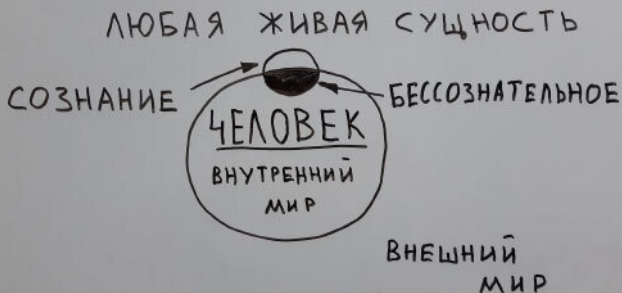 ЛЮБАЯ ЖИВАЯ СУЩНОСТЬ
СОЗНАНИЕ
БЕССОЗНАТЕЛЬНОЕ
ЧЕЛОВЕК
ВНУТРЕННИЙ
МИР
ВНЕШНИЙ
МИР